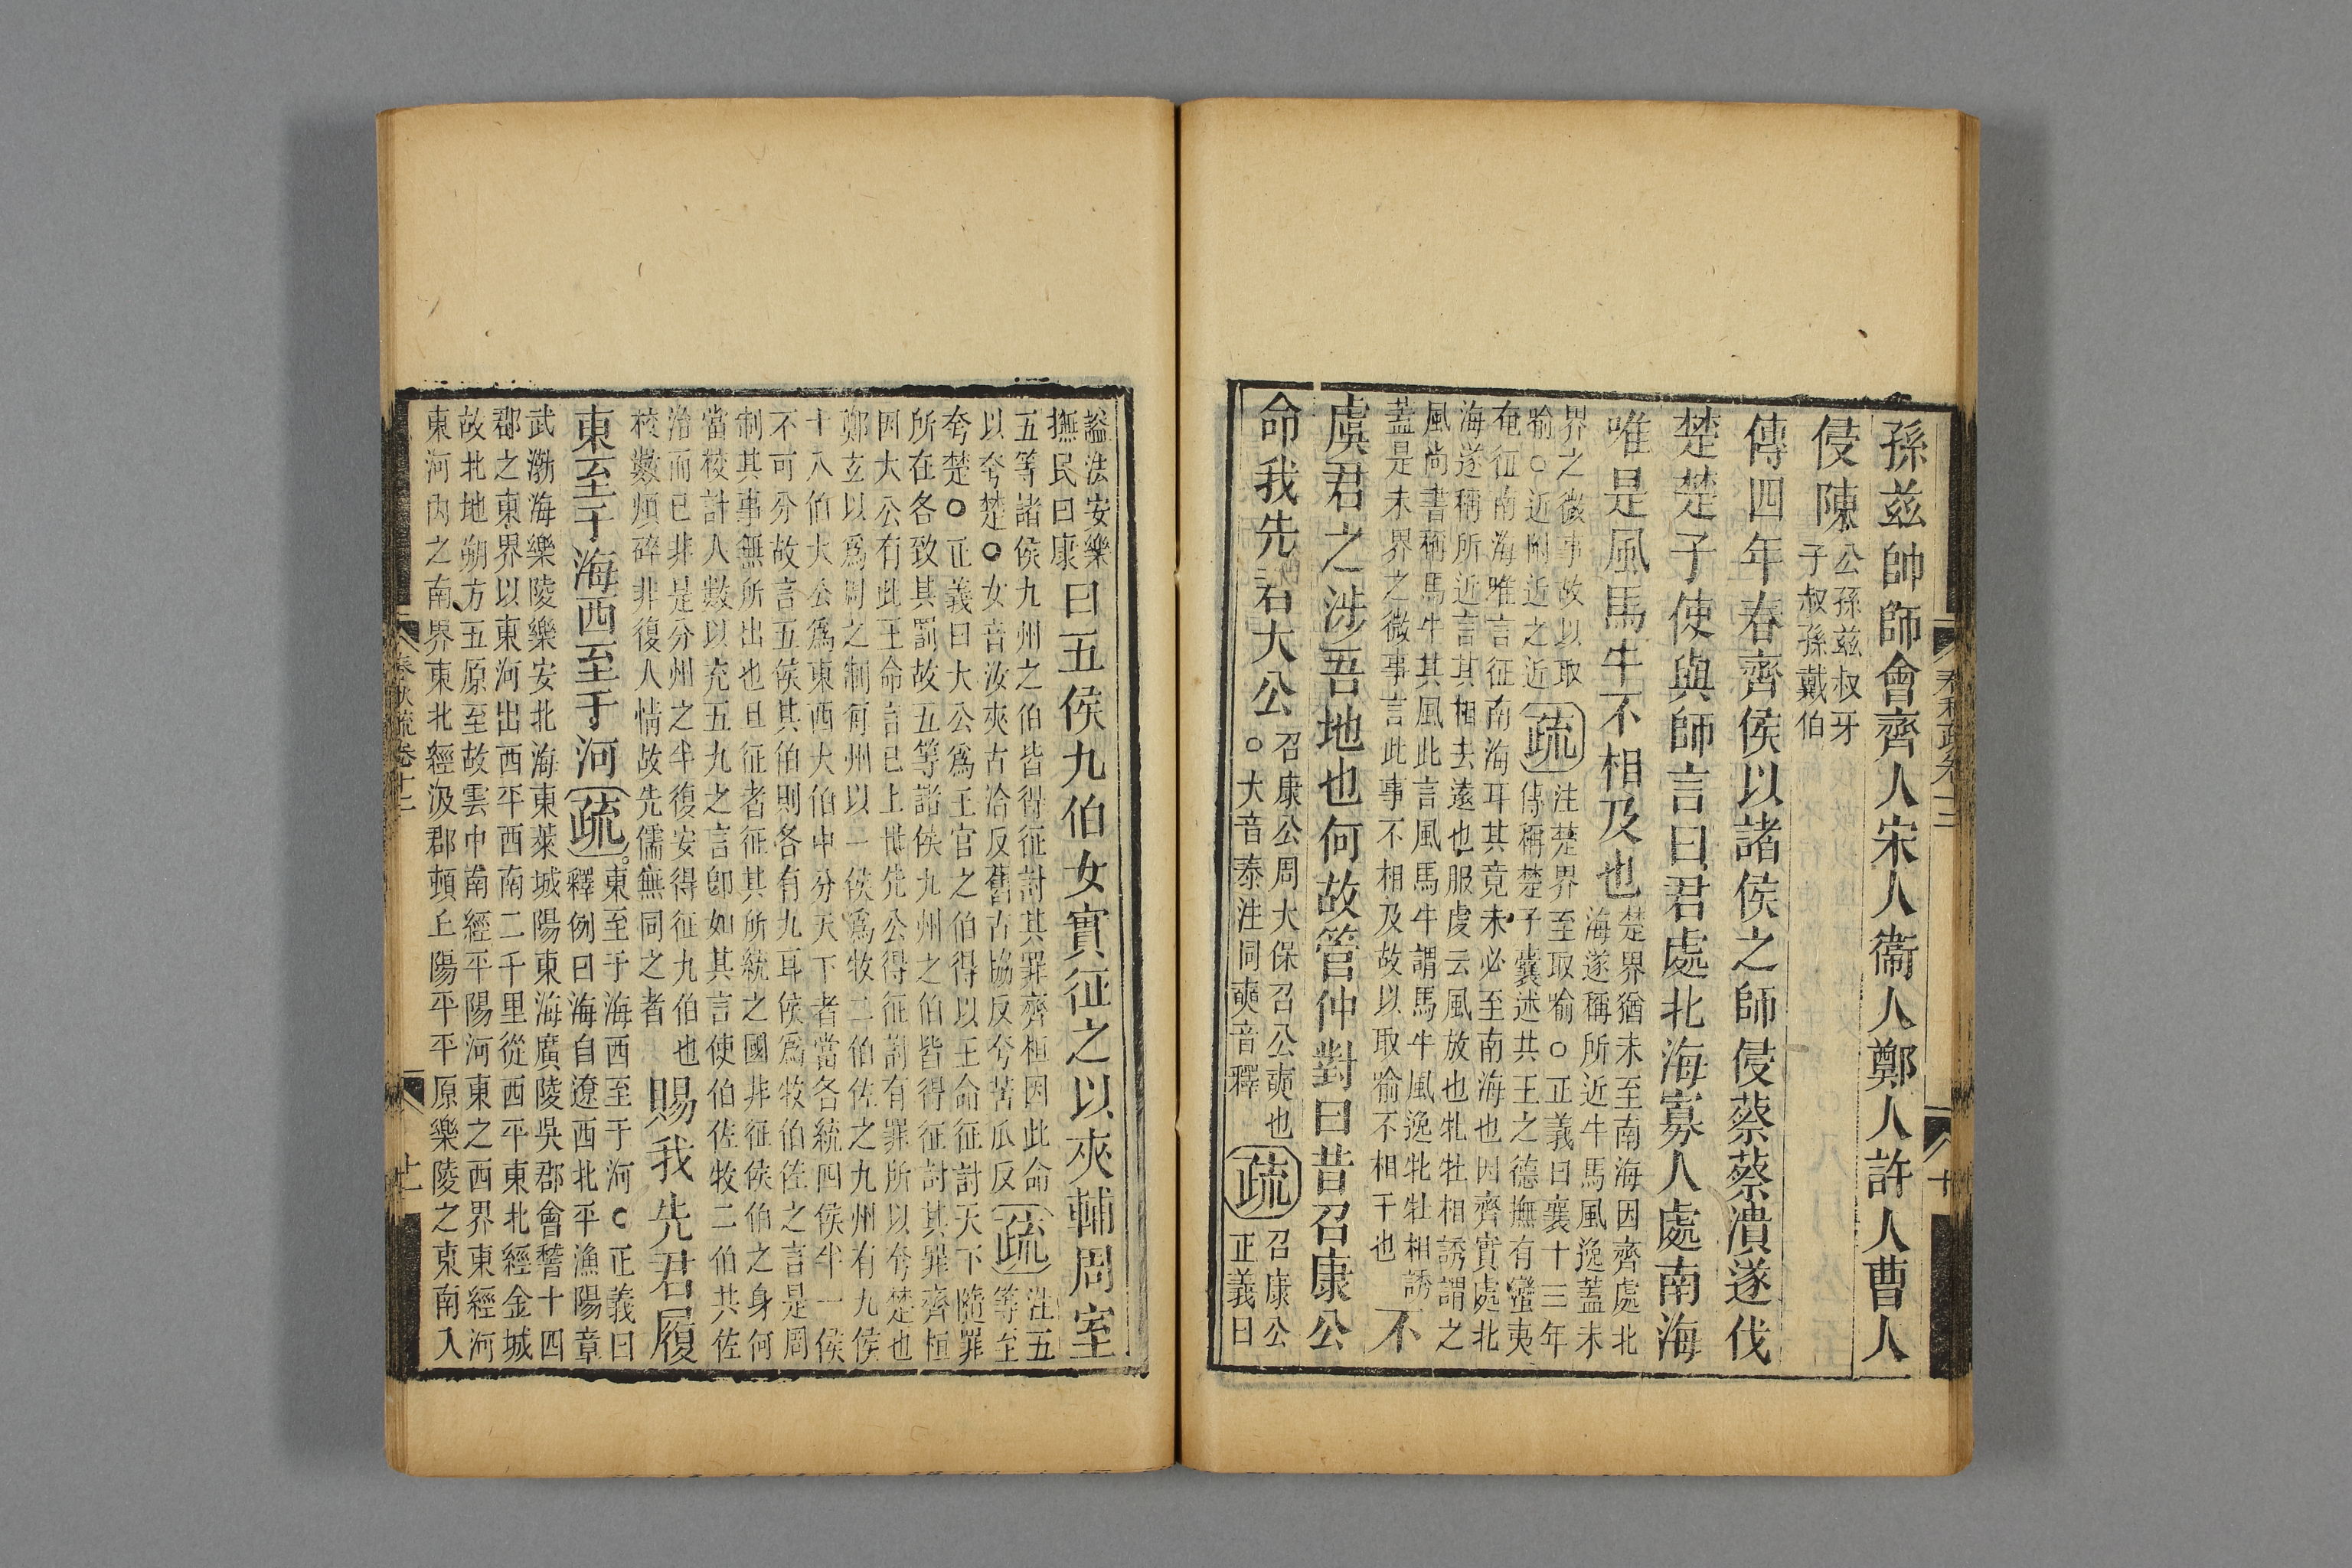 孫茲帥師會齊人宋人衞人鄭人許人曹人
侵陳公孫茲叔牙
子叔孫戴伯
傳四年春齊侯以諸侯之師侵蔡蔡潰遂伐
楚楚子使與師言曰君處北海寡人處南海
唯是風馬牛不相及也楚界猶未至南海因齊處北
海遂稱所近牛馬風逸蓋未
界之微事故以取
喻○近附近之近疏注楚界至取喻○正義曰襄十三年
傳稱楚子囊述共王之德撫有蠻夷
奄征南海唯言征南海耳其竟未必至南海也因齊實處北
海遂稱所近言其相去遠也服虔云風放也牝牡相誘謂之
風尚書稱馬牛其風此言風馬牛謂馬牛風逸牝牡相誘
蓋是末界之微事言此事不相及故以取喻不相干也不
虞君之涉吾地也何故管仲對曰昔召康公
命我先君大公召康公周大保召公奭也
○大音泰注同奭音釋疏召康公
正義曰
謚法安樂
撫民曰康曰五侯九伯女實征之以夾輔周室
五等諸侯九州之伯皆得征討其罪齊桓因此命
以夸楚○女音汝夾古洽反舊古協反夸苦瓜反疏注五
等至
夸楚○正義曰大公爲王官之伯得以王命征討天下隨罪
所在各致其罰故五等諸侯九州之伯皆得征討其罪齊桓
因大公有此王命言己上世先公得征討有罪所以夸楚也
鄭玄以爲周之制每州以一侯爲牧二伯佐之九州有九侯
十八伯大公爲東西大伯中分天下者當各統四侯半一侯
不可分故言五侯其伯則各有九耳侯爲牧伯佐之言是周
制其事無所出也且征者征其所統之國非征侯伯之身何
當校計人數以充五九之言卽如其言使伯佐牧二伯共佐
治而已非是分州之半復安得征九伯也
校數煩碎非復人情故先儒無同之者賜我先君履
東至于海西至于河疏東至于海西至于河○正義曰
釋例曰海自遼西北平漁陽章
武渤海樂陵樂安北海東萊城陽東海廣陵吳郡會稽十四
郡之東界以東河出西平西南二千里從西平東北經金城
故北地朔方五原至故雲中南經平陽河東之西界東經河
東河內之南界東北經汲郡頓丘陽平平原樂陵之東南入